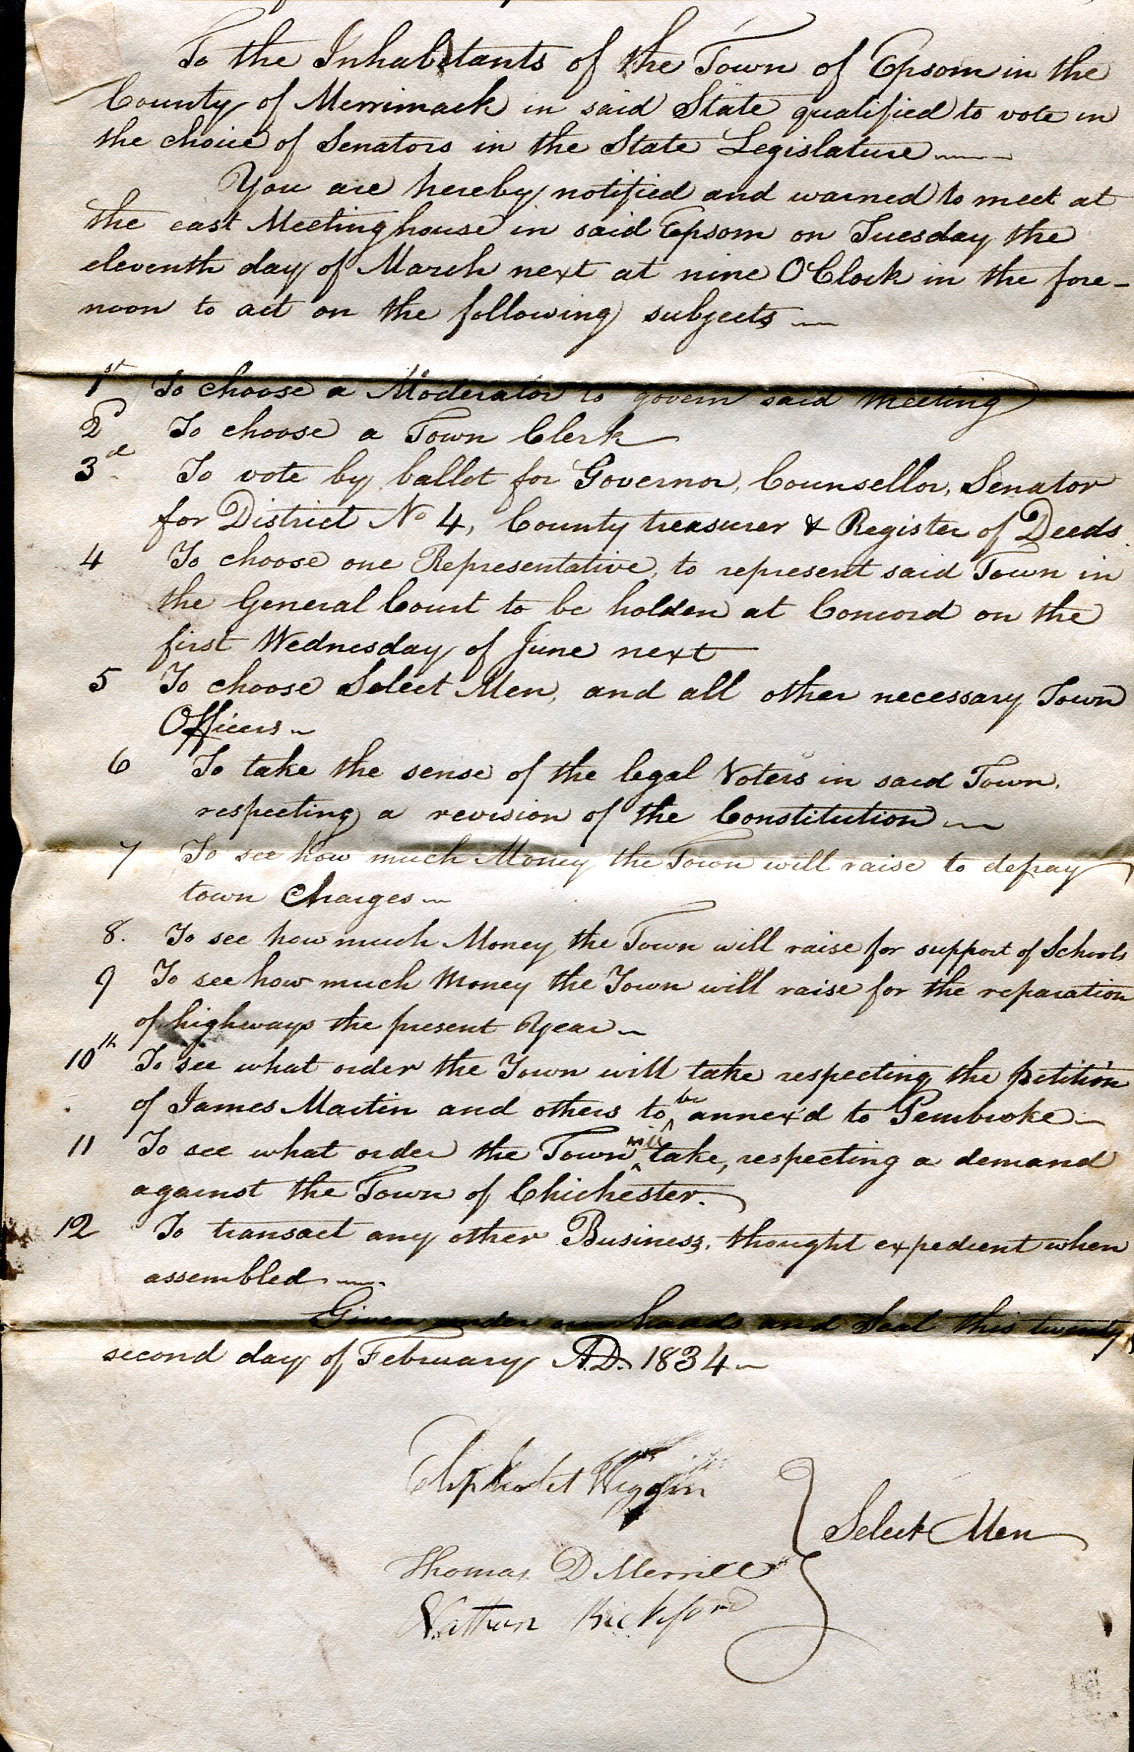 To the Inhabitants of the Town of Epsom in the
County of Merrimack in said State qualified to vote in
the choice of Senators in the State Legislature
You are hereby notified and warned to meet at
the east Meetinghouse in said Epsom on Tuesday the
eleventh day of March next at nine O'Clock in the fore-
noon to act on the following subjects
1st To choose a Moderator to govern said meeting
2d To choose a Town Clerk
3d To vote by ballot for Governor, Counsellor, Senator
for District No 4, County treasurer & Register of Deeds
4 To choose one Representative, to represent said Town in
the General Court to be holden at Concord on the
first Wednesday of June next
5 To choose Select Men, and all other necessary Town
Officers
6 To take the sense of the legal Voters in said Town,
respecting a revision of the Constitution
7 To see how much Money the Town will raise to defray
town Charges
8. To see how much Money the Town will raise for support of Schools
9 To see how much Money the Town will raise for the reparation
of highways the present Year
10th To see what order the Town will take respecting the petition
of James Martin and others to be annex'd to Pembroke
11 To see what order the Town will take, respecting a demand
against the Town of Chichester.
12 To transact any other Business, thought expedient when
assembled
Given under our hands and Seal this twenty
second day of February A.D. 1834
Eliphalet Wiggin
Select Men
Thomas D Merrill
Nathan Bickford